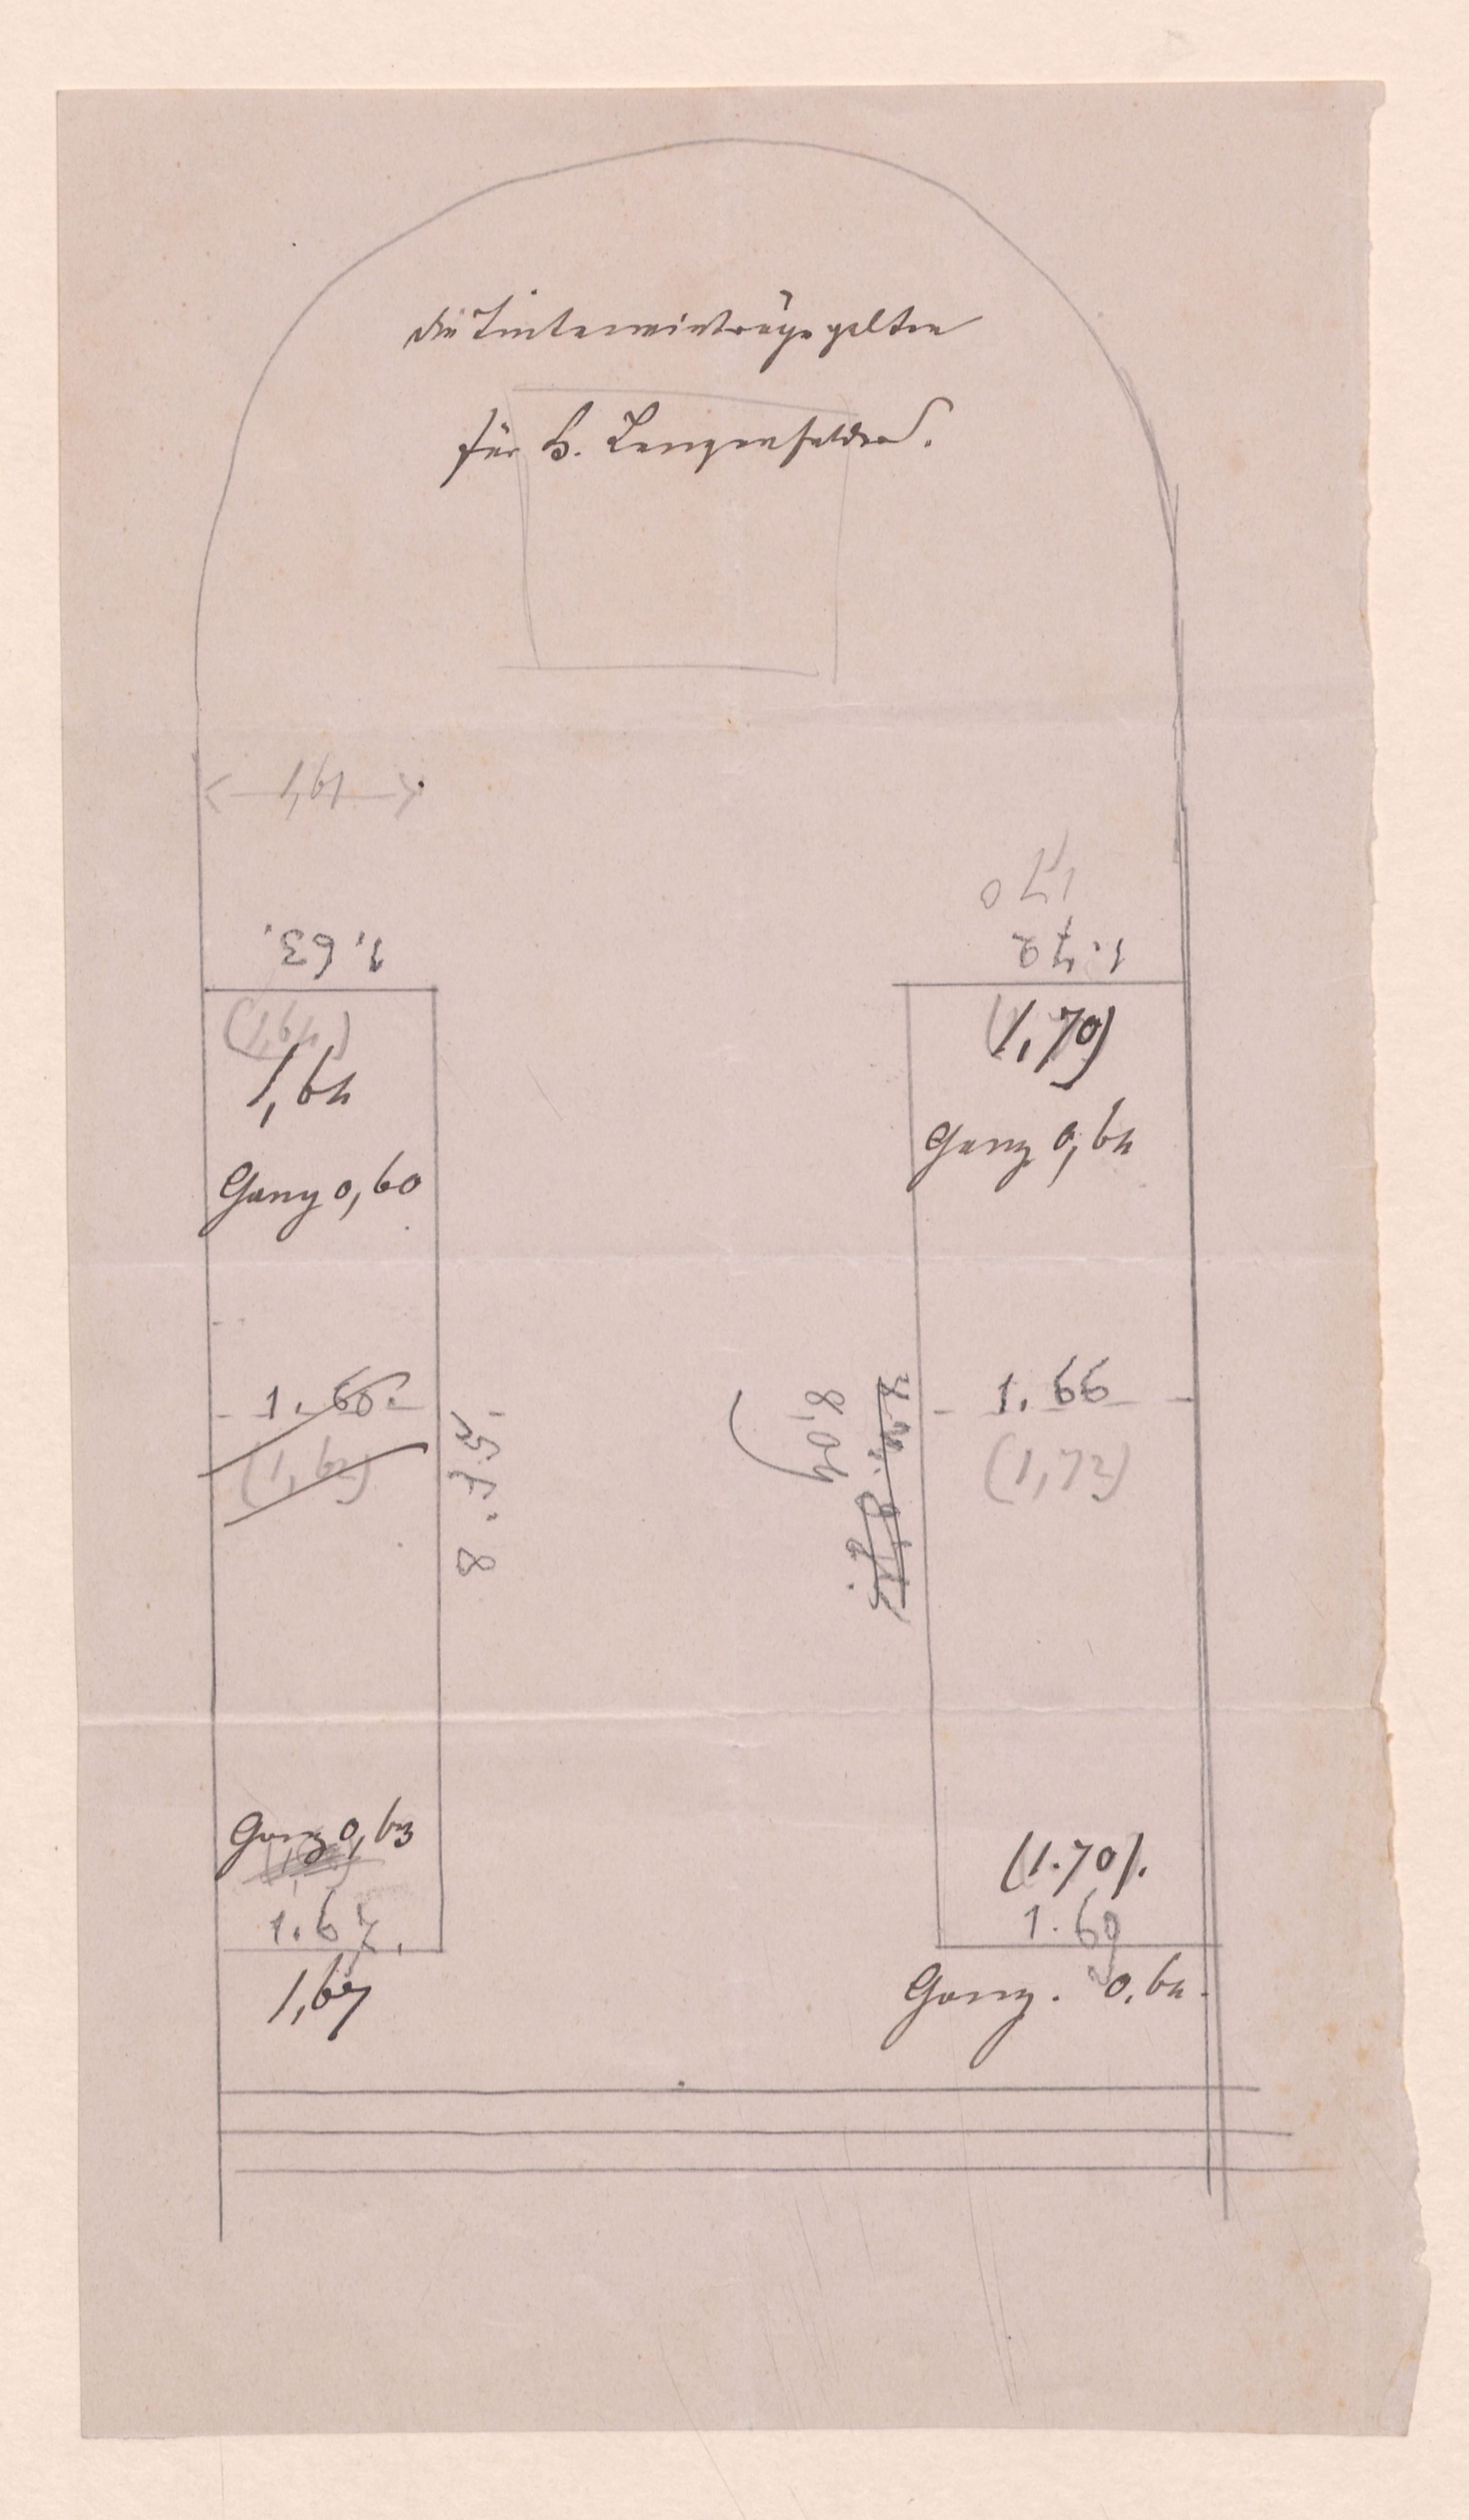 Die Tinteneinträge gelten
für H. Langenfelder.
1,61
1.63.
(1,64)
1,64
Gang 0,60
1.66.
(1,62)
8.75.
Gang 0,63
1.67.
1,67
1,70
1.72
(1,70)
Gang 0,64
1.66
(1,72)
8,04
(1.70).
1.69
Gang. 0,64.